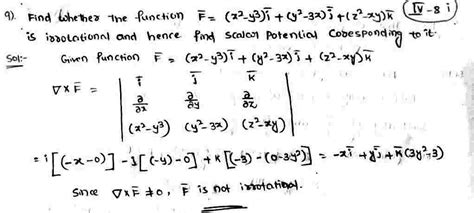 9). Find whether the function F̄ = (x²-y³)ī + (y²-3x)j̄ + (z²-xy)k̄
IV-8 i
is irrotational and hence find scalar Potential Corresponding to it.
Sol:- Given function F̄ = (x²-y³)ī + (y²-3x)j̄ + (z²-xy)k̄
∇×F̄ = | ī j̄ k̄ |
| ∂/∂x ∂/∂y ∂/∂z |
| (x²-y³) (y²-3x) (z²-xy) |
= i[(-x-0)] - j[(-y)-0] + k[(-3)-(0-3y²)] = -xī + yj̄ + k̄(3y²-3)
Since ∇×F̄ ≠ 0, F̄ is not irrotational.